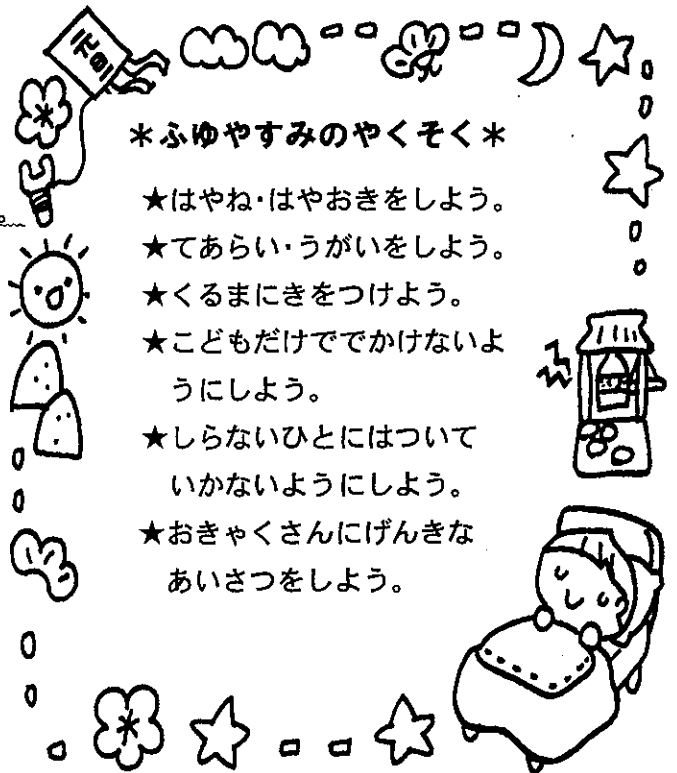 元旦
＊ふゆやすみのやくそく＊
★はやね・はやおきをしよう。
★てあらい・うがいをしよう。
★くるまにきをつけよう。
★こどもだけででかけないよ
うにしよう。
★しらないひとにはついて
いかないようにしよう。
★おきゃくさんにげんきな
あいさつをしよう。